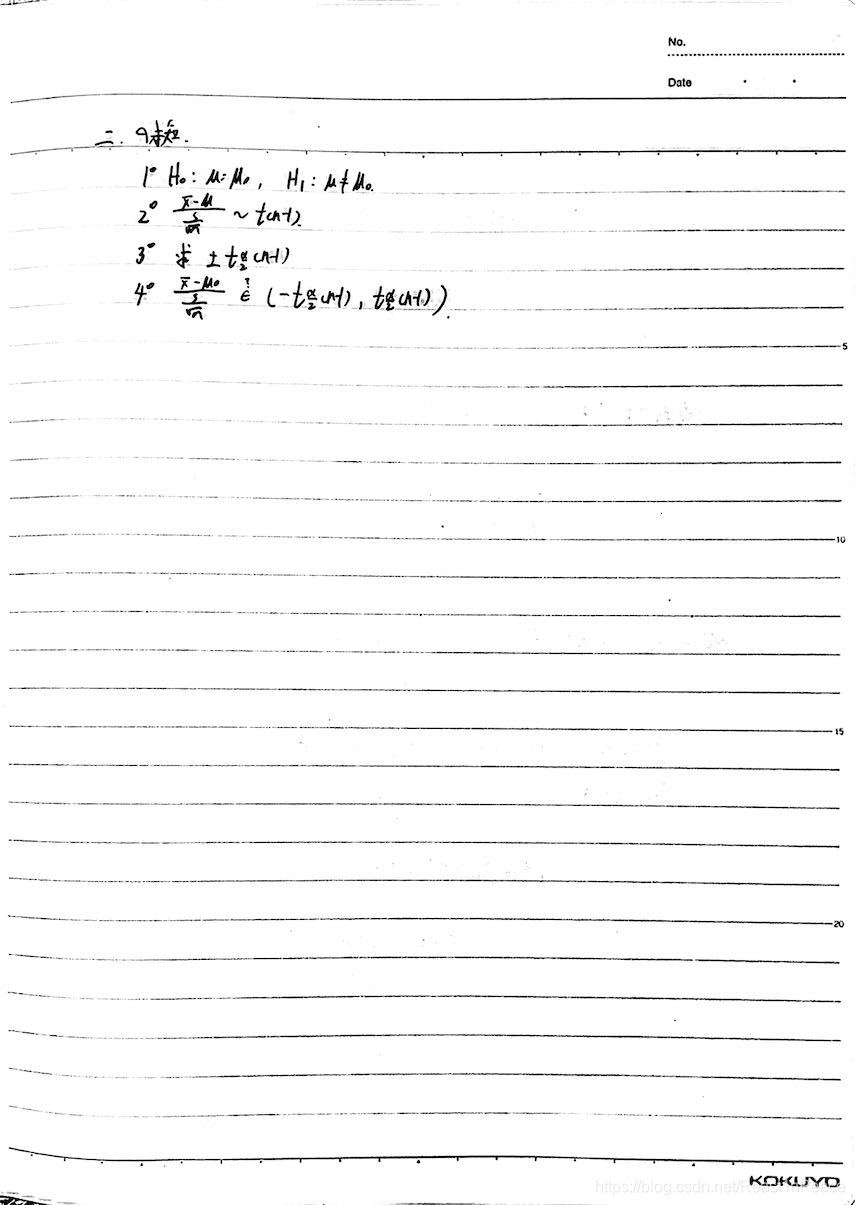 No.
Date
二. 9求
1° H₀: μ=μ₀, H₁: μ≠μ₀.
2° (x̄-μ)/(s/√n) ~ t(n-1).
3° 求 ±t_{α/2}(n-1)
4° (x̄-μ₀)/(s/√n) ∈? (-t_{α/2}(n-1), t_{α/2}(n-1)).
5
10
15
20
KOKUYO
https://blog.csdn.net/